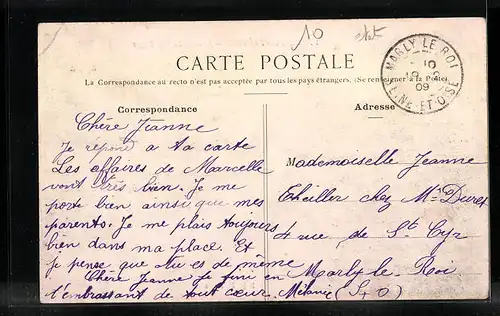 10
CARTE POSTALE
La Correspondance au recto n'est pas acceptée par tous les pays étrangers. (Se renseigner à la Poste)
MARLY LE ROI
10
09
SEINE-ET-OISE
Correspondance
Chère Jeanne
Je répond a ta carte
Les affaires de Marcelle
vont très bien. Je me
porte bien ainsi que mes
parents. Je me plais toujours
bien dans ma place. Et
je pense que tu es de même
Chère Jeanne je fini en
t'embrassant de tout cœur. Mélanie
Adresse
Mademoiselle Jeanne
chez Mme Duret
4 rue de St Cyr
Marly le Roi
(S & O)